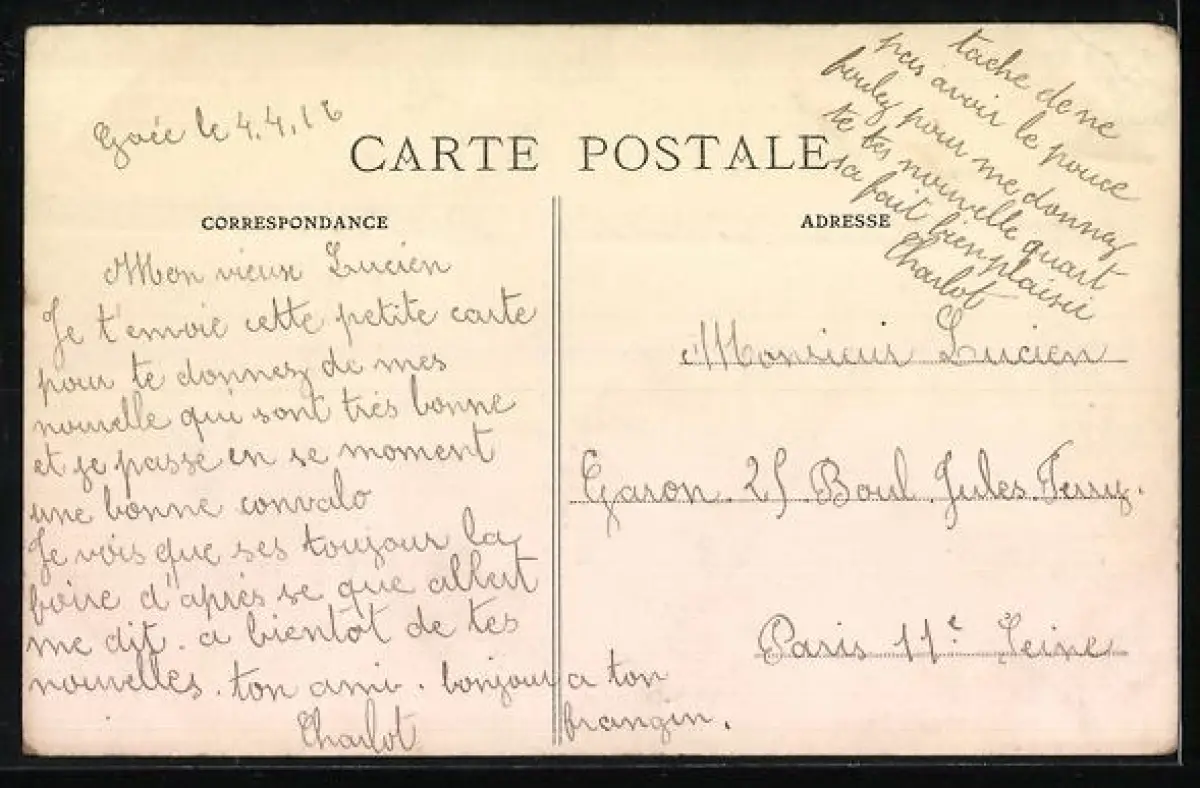 Gacé le 4.4.16
CARTE POSTALE
tache de ne
pas avoir le pouce
fouley pour me donnez
te tes nouvelle quart
sa fait bien plaisir
Charlot
CORRESPONDANCE
Mon vieux Lucien
Je t'envoie cette petite carte
pour te donnez de mes
nouvelle qui sont très bonne
et je passe en se moment
une bonne convalo
Je vois que ses toujour la
foire d'après se que albert
me dit. a bientôt de tes
nouvelles. ton ami. bonjour a ton
frangin.
Charlot
ADRESSE
Monsieur Lucien
Garon. 25 Boul. Jules Ferry.
Paris 11e Seine